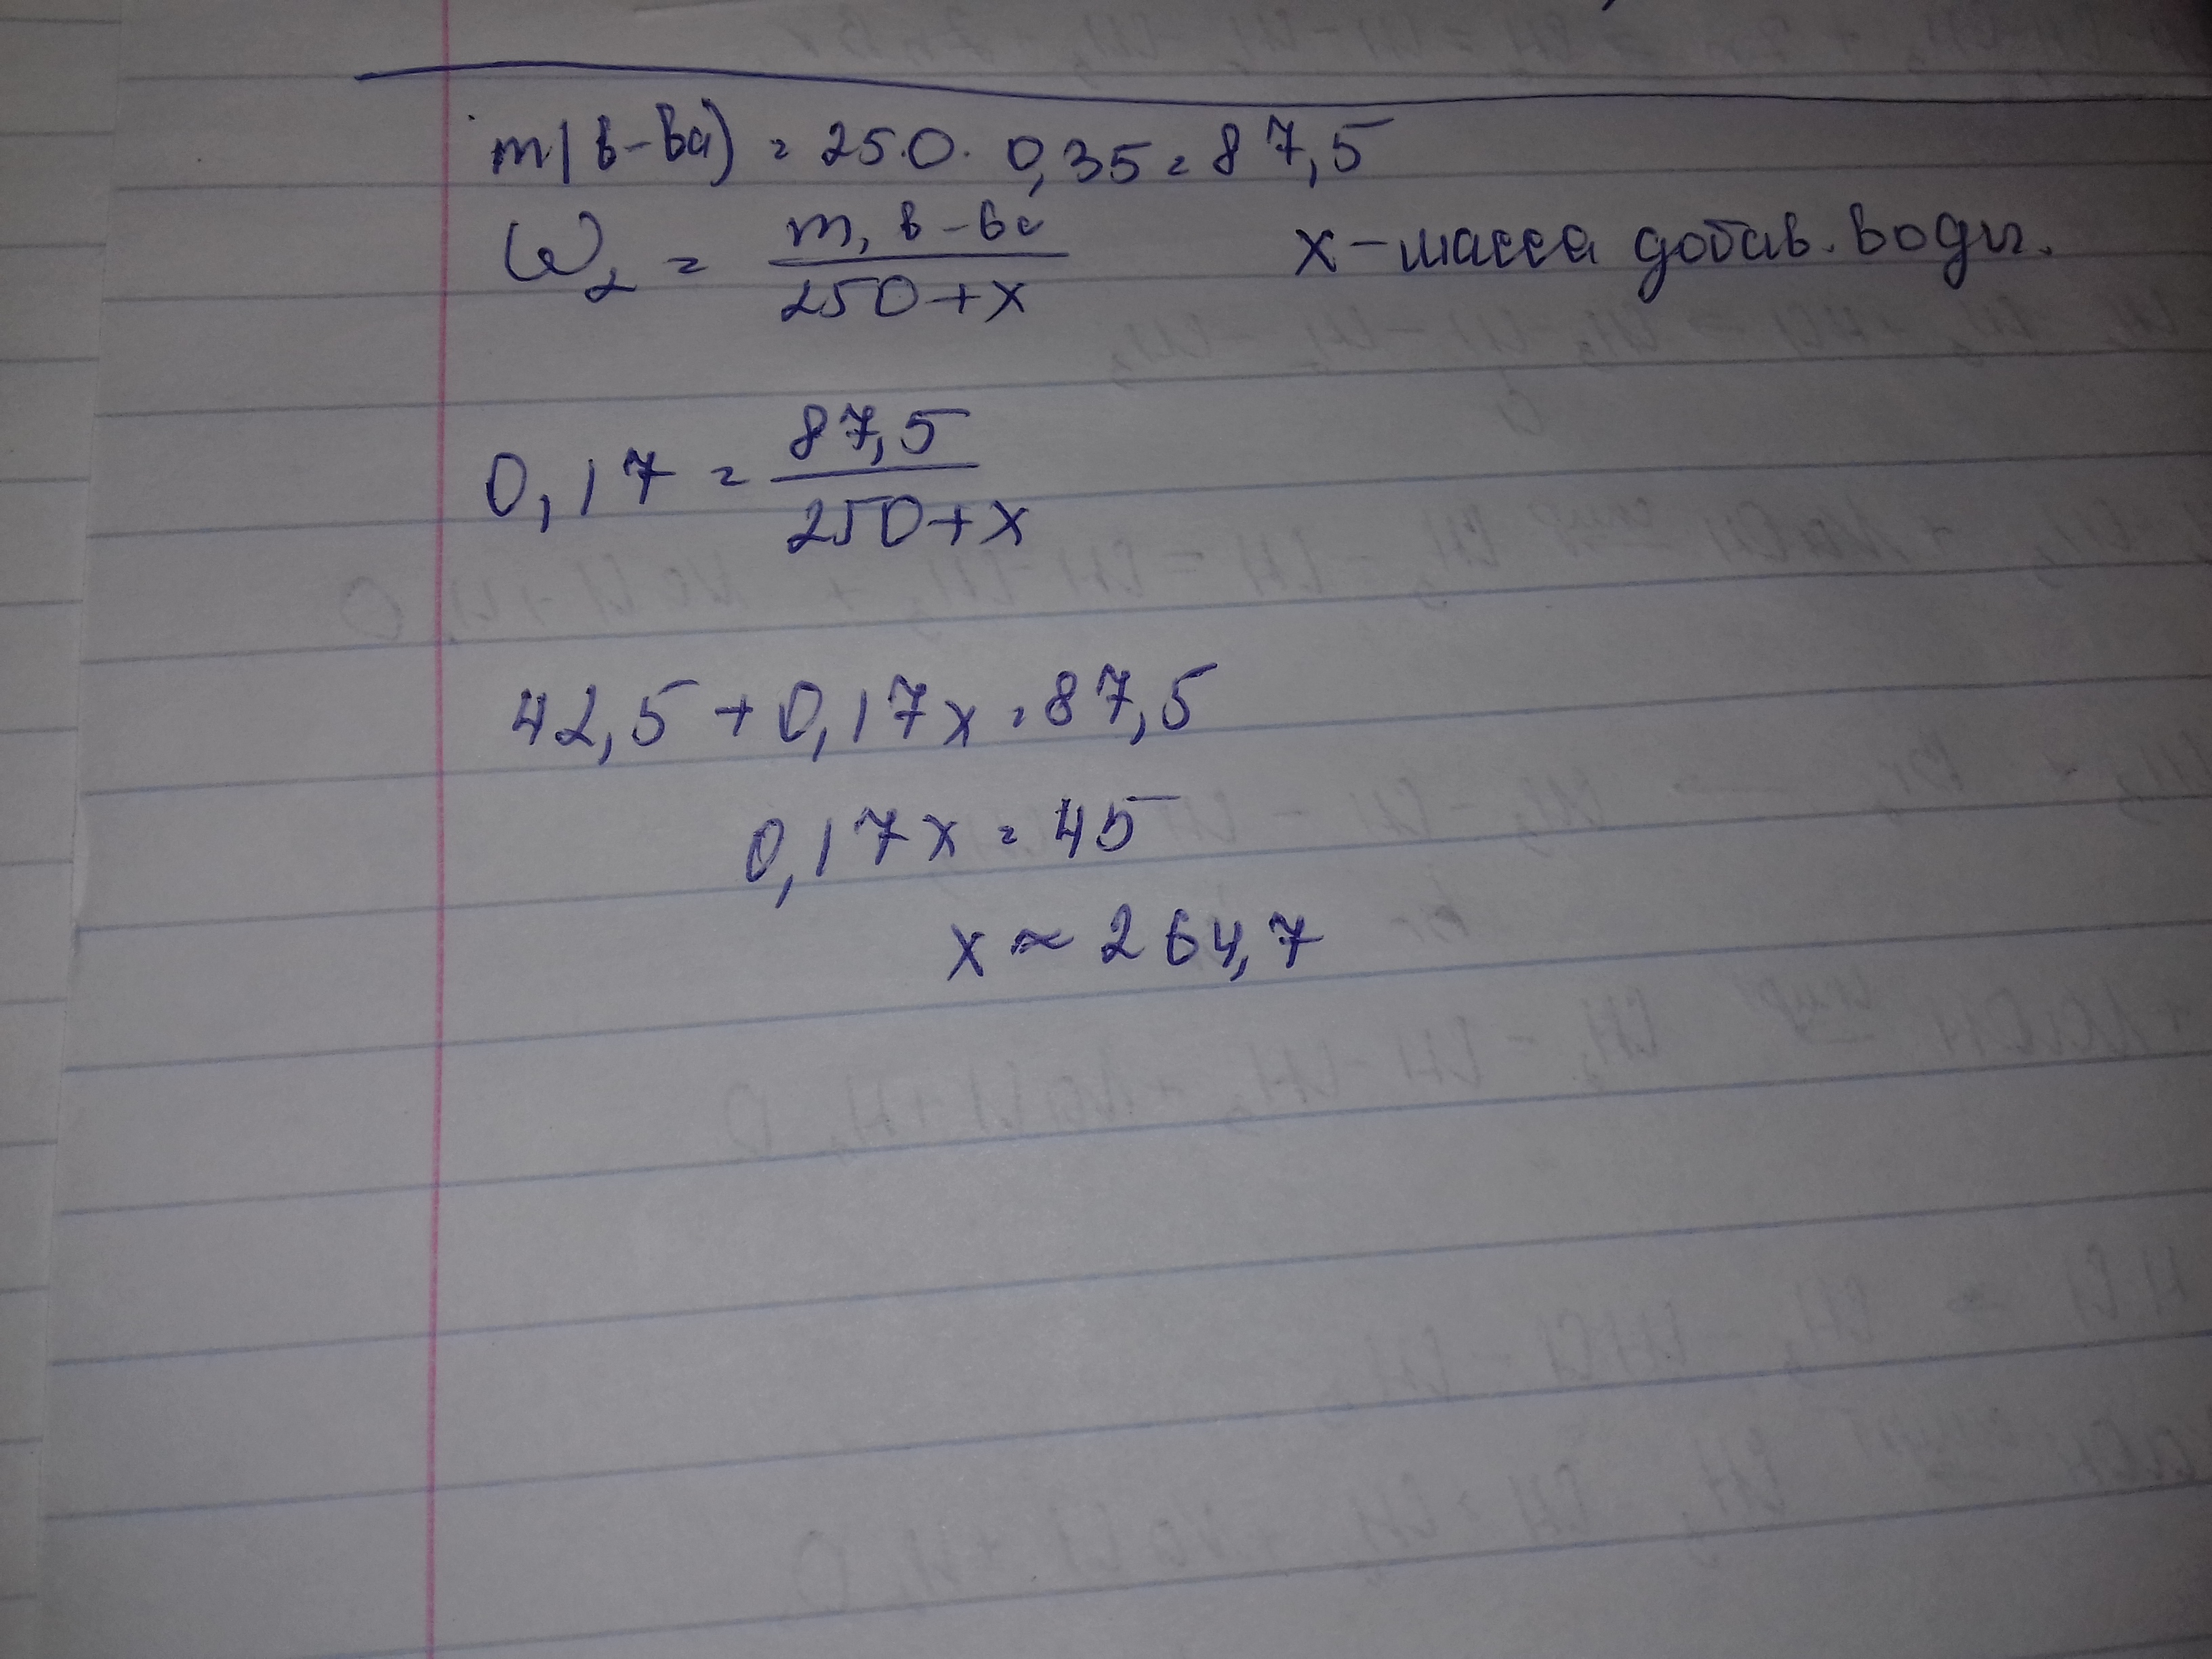 m(в-ва) = 250 · 0,35 = 87,5
ω₂ = m, в-ва / 250+x   x – масса добав. воды.
0,17 = 87,5 / 250+x
42,5 + 0,17x = 87,5
0,17x = 45
x ≈ 264,7